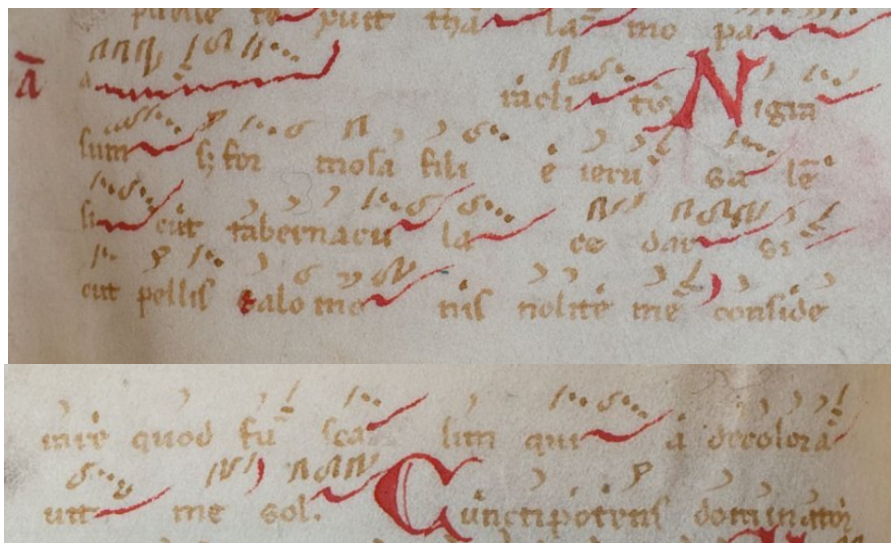 puelle te puit tha la mo pa
a incli to Nigra
sum s; for mosa fili e ieru sa lē
si cut tabernacu la ce dar si
cut pellis salo mo nis nolite me conside
rare quod fu sca sim qui a decolora
uit me sol. Cunctipotens dominator